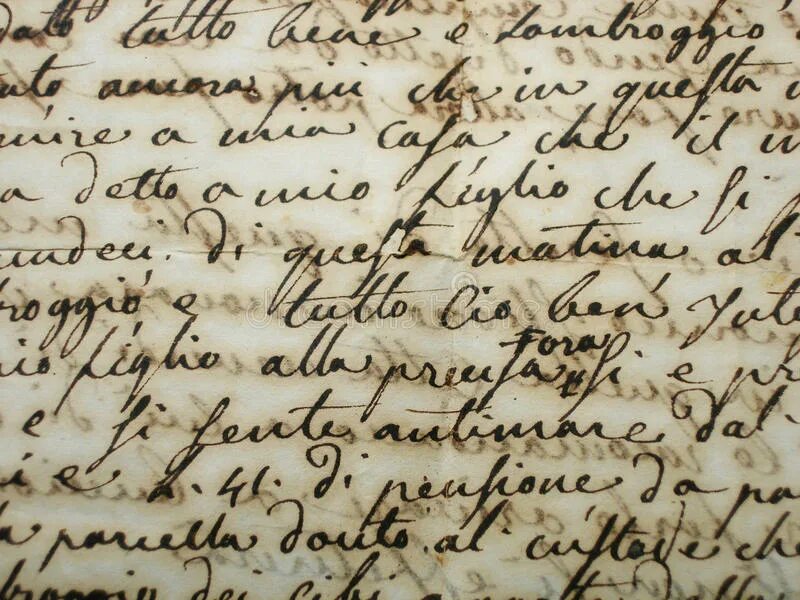 dato tutto bene e Lombroggio
ato ancora più che in questa
nire a mia casa che il
a detto a mio figlio che si
undeci di questa matina al
roggió e tutto ciò ben Inte
io figlio alla precisa Fora si e pr
e si sente antimare dal
i e L. 41. di pensione da pa
a parcella douto al custode che
broggio dei cibi a
dreamstime.com